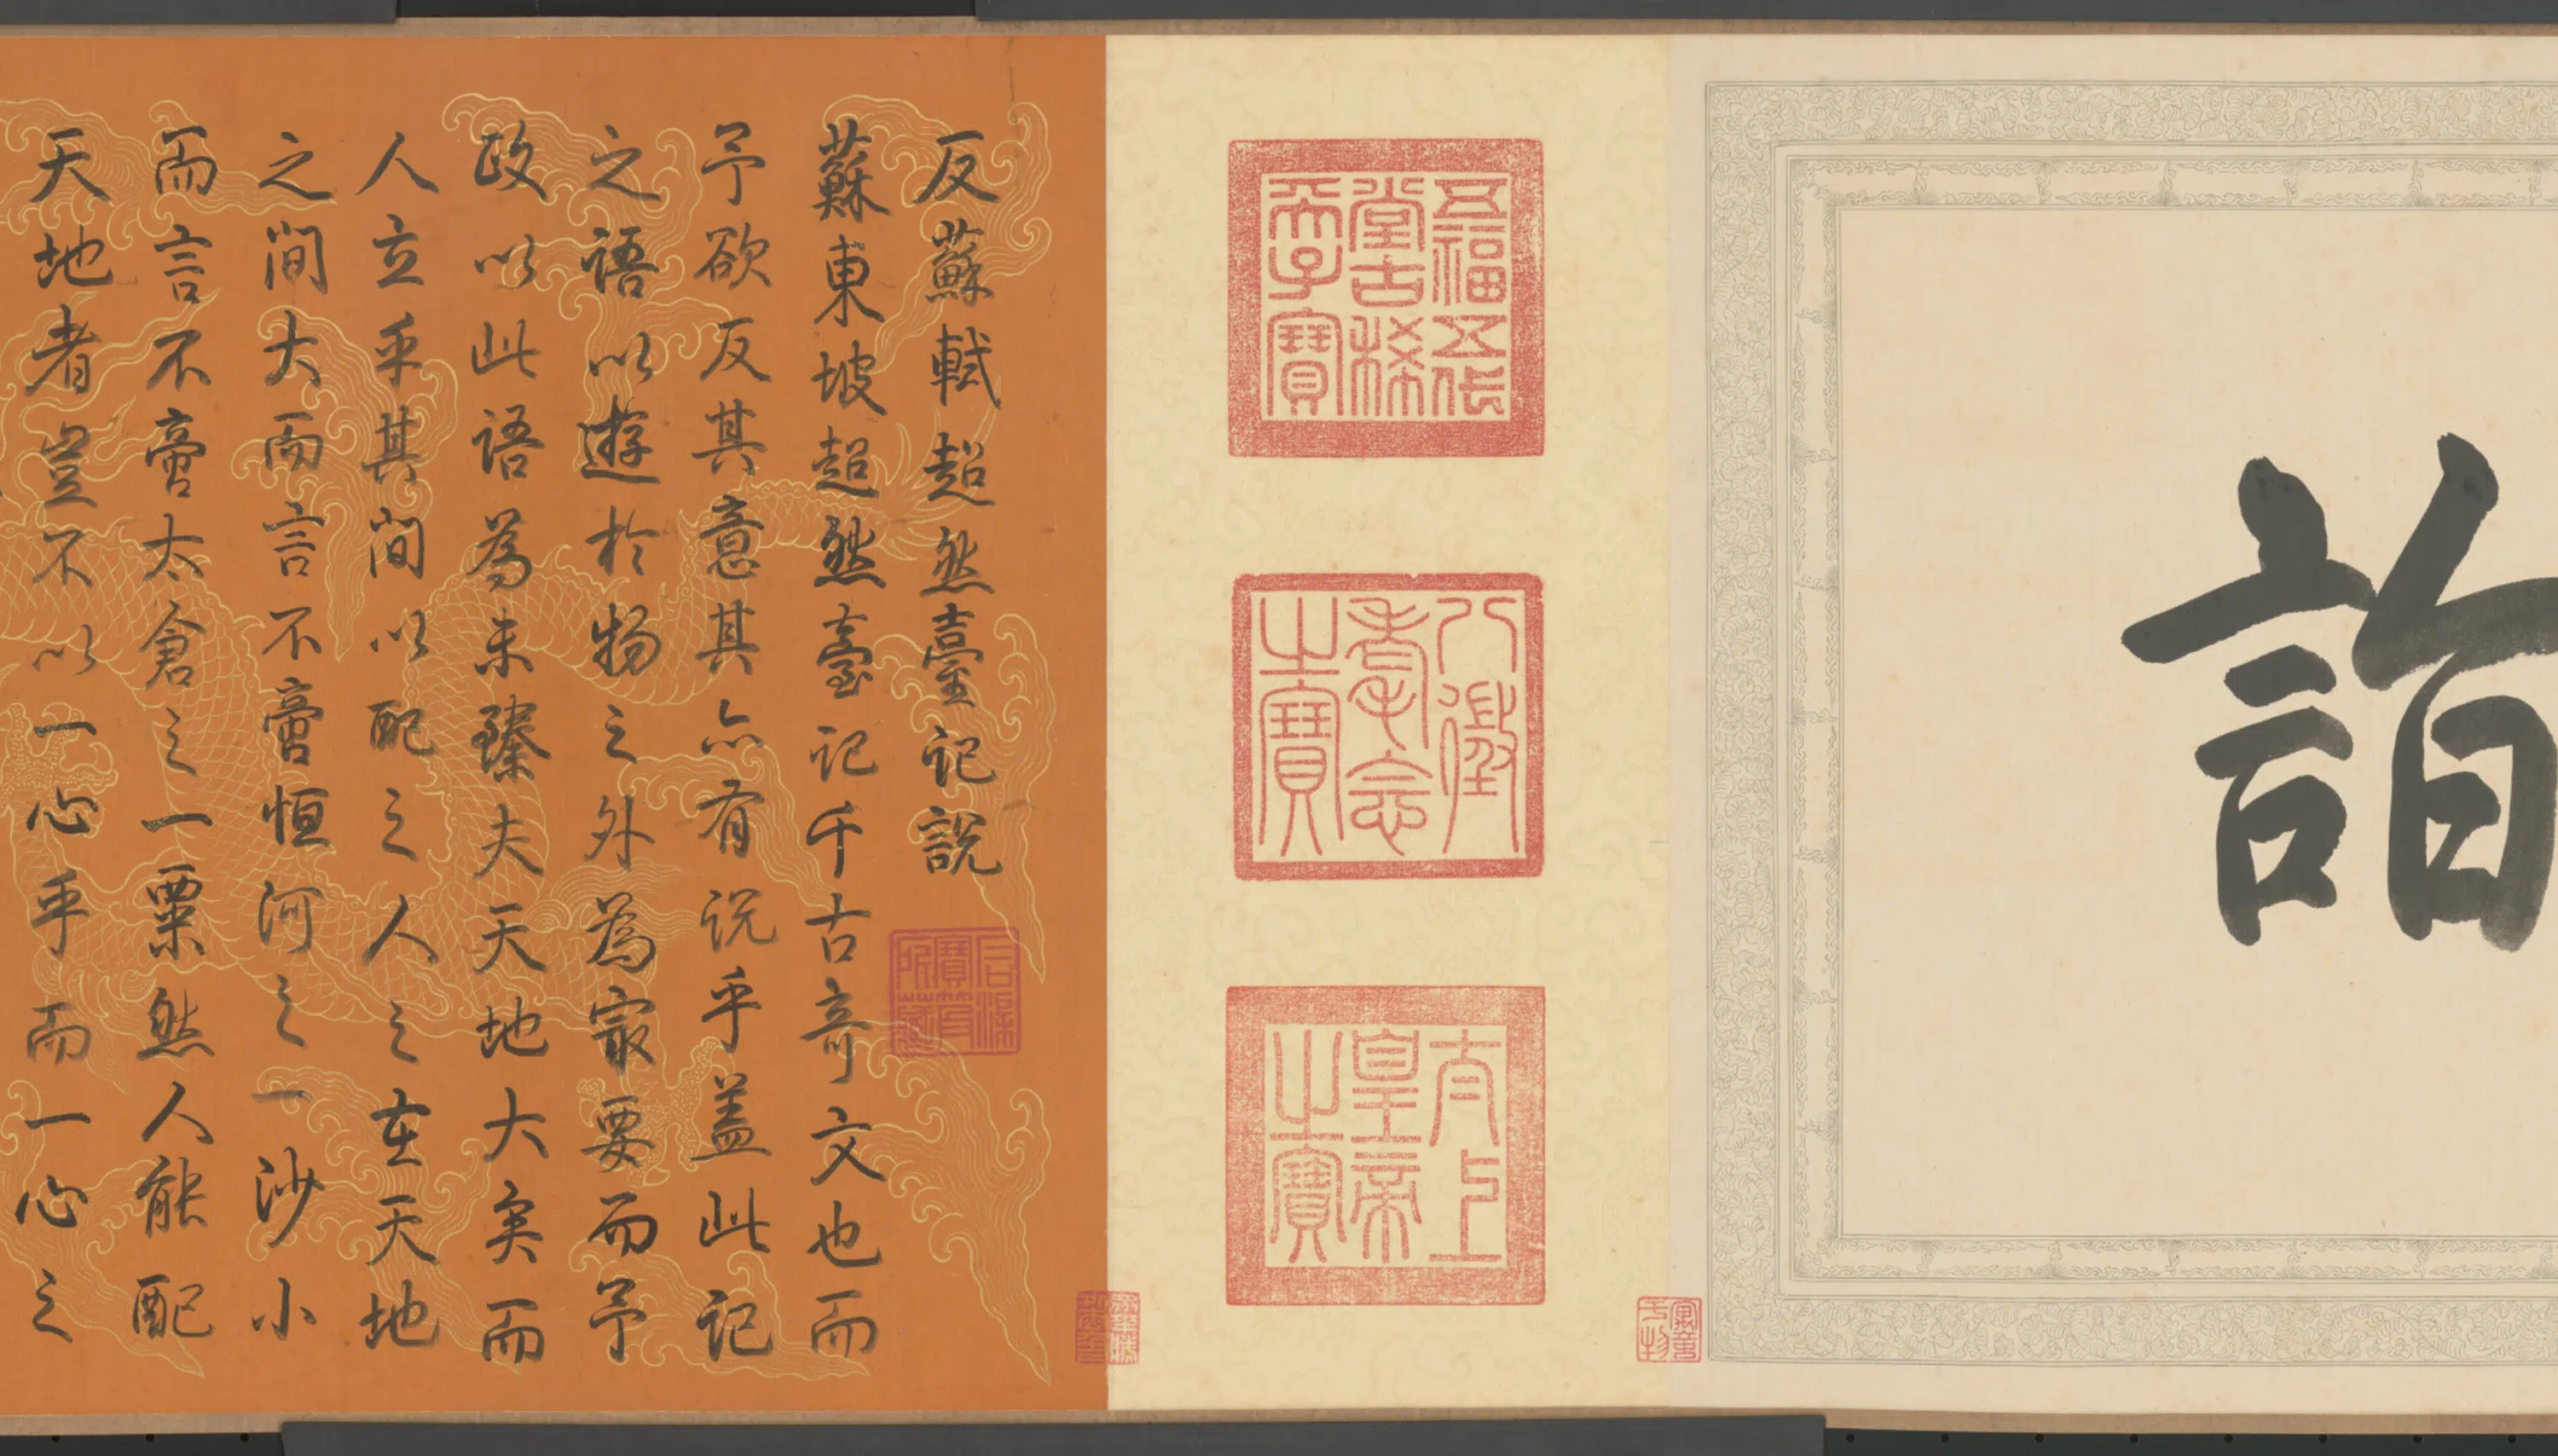 詣
五福五代
堂古稀
天子寶
八徵
耄念
之寶
太上
皇帝
之寶
反蘇軾超然臺記說
蘇東坡超然臺記千古奇文也而
予欲反其意其亦有說乎蓋此記
之語以遊於物之外為最要而予
政以此語為未臻夫天地大矣而
人立乎其間以配之人之在天地
之間大而言不啻恒河之一沙小
而言不啻太倉之一粟然人能配
天地者豈不以一心乎而一心之